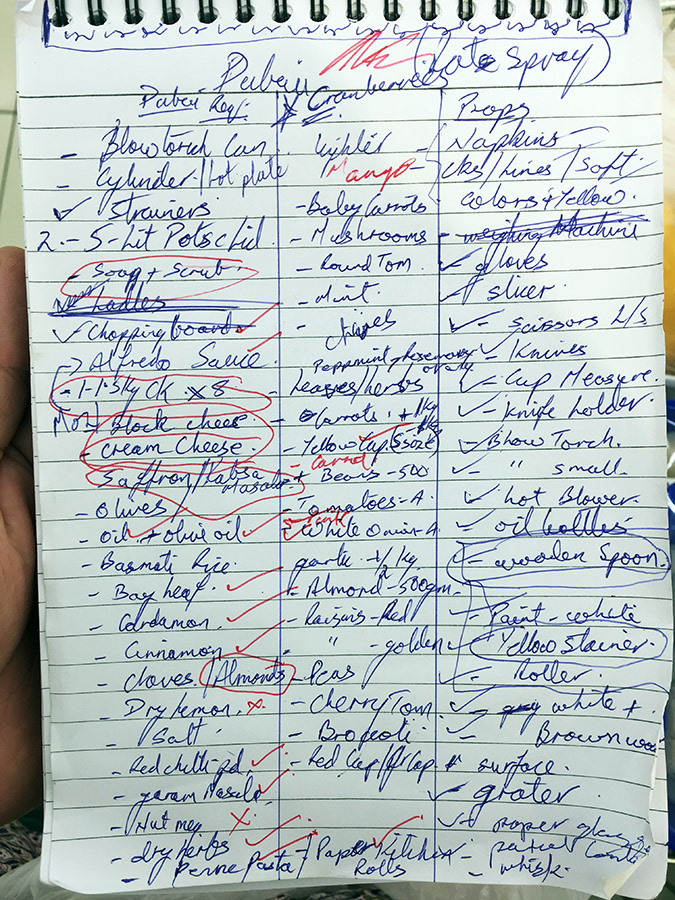 Dubai
(Late Spray)
Dubai Req:
Blowtorch Can
- Cylinder/Hot plate
✓ Strainers
2. - 5-Lit Pots c lid
- Soap + Scrub.
Ladles
✓ Chopping boards
Alfredo Sauce
- 1-1.3kg CK x 8
Block cheese
- Cream Cheese
Saffron/Kabsa
Masala
- Olives
- Oil + Olive oil
- Basmati Rice
- Bay leaf
- Cardamon
- Cinnamon
- Cloves /Almonds
- Dry lemon x
- Salt
- Red chilli pd
- garam Masala
- Nut meg x
- dry herbs
- Penne Pasta
Cranberries
Lighter
Mango
- Baby Carrots
- Mushrooms
- Round Tom
- Mint
- Chives
Peppermint/Rosemary
- Leaves/herbs
- Carrots: 1kg
- Yellow Cap
- Carrot
- Beans - 500
- Tomatoes - A
- White Onion - A
garlic - 1/2 kg
- Almond - 500gm
- Raisins - Red
- " - golden
- Peas
- Cherry Tom
- Brocoli
- Red Cap/Gr Cap
- Paper Kitchen
Rolls
Props
- Napkins -
/Lines/Soft
Colors + Yellow
- weighing Machine
✓ gloves
✓ slicer
✓ - Scissors L/S
✓ - Knives
✓ - Cup Measure.
✓ - Knife holder
✓ - Blow Torch.
✓ - " small
✓ hot Blower
✓ - oil bottles
- wooden Spoon
- Paint - white
Yellow Stainer.
✓ - Roller
✓ - white +
✓ Brown
surface
✓ grater
✓ paper
- whisk